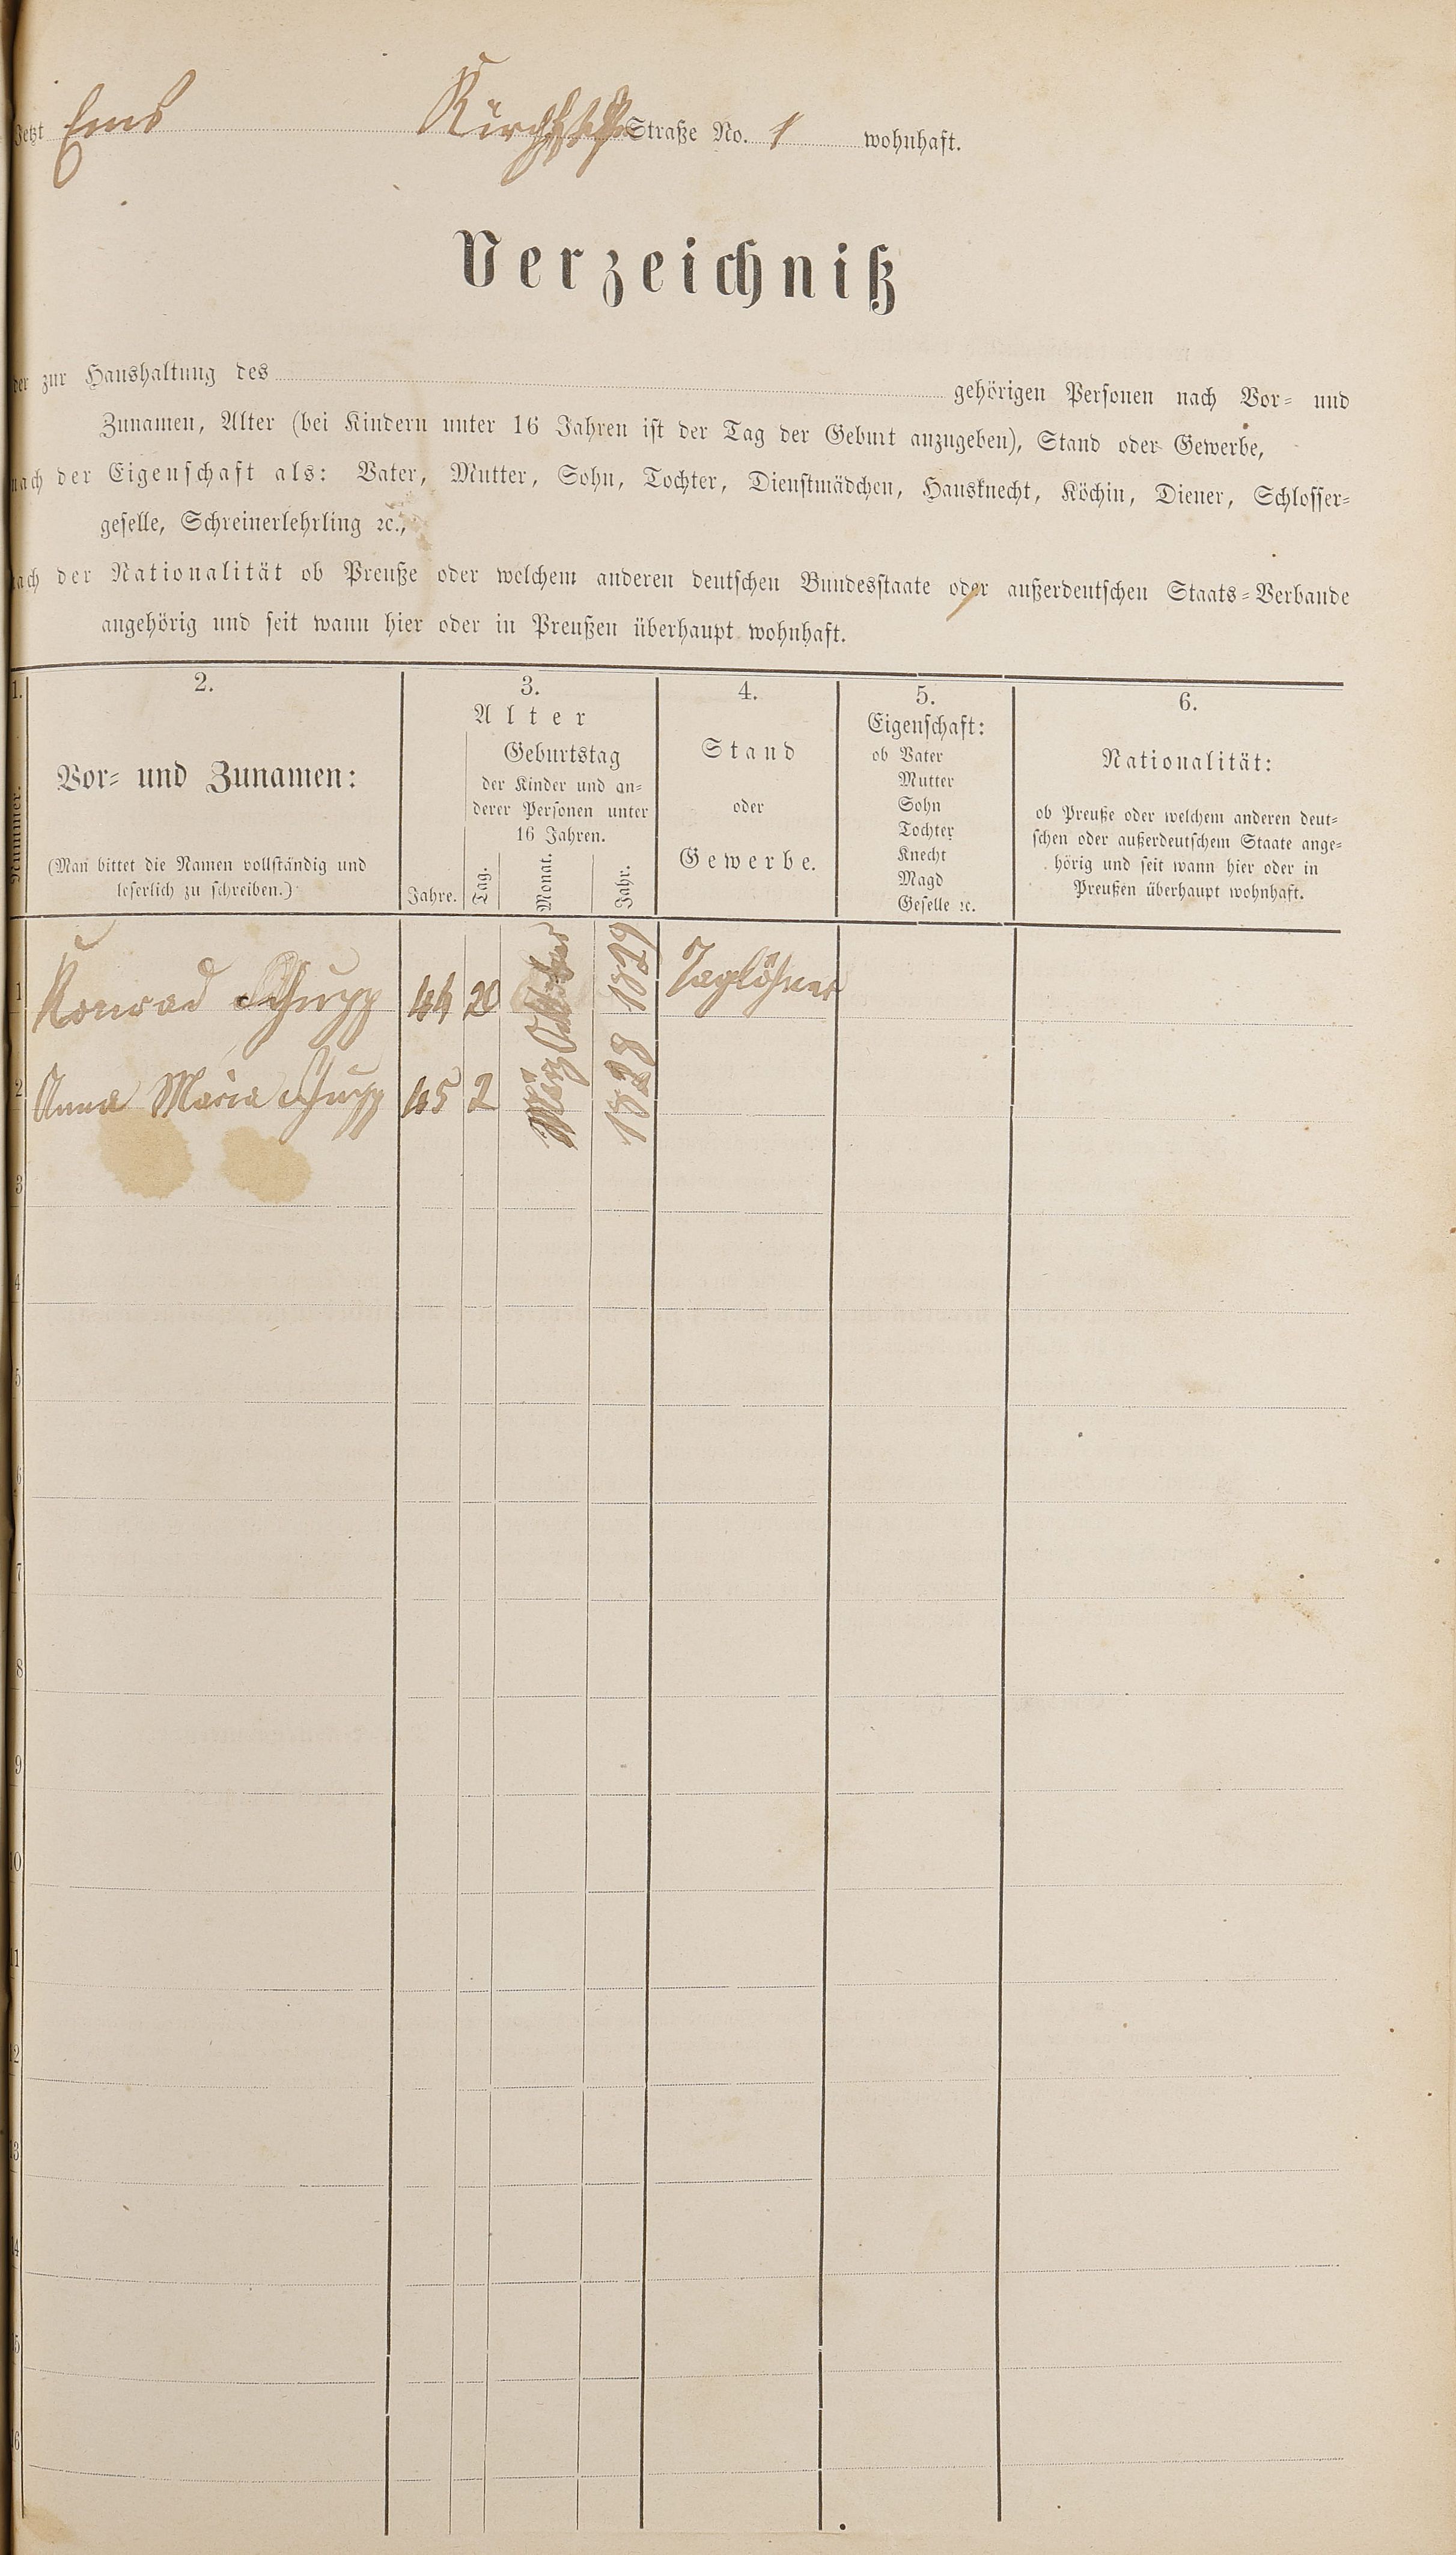 Jetzt Ems Kirch Straße No. 1 wohnhaft.
Verzeichniß
der zur Haushaltung des gehörigen Personen nach Vor- und
Zunamen, Alter (bei Kindern unter 16 Jahren ist der Tag der Geburt anzugeben), Stand oder Gewerbe,
nach der Eigenschaft als: Vater, Mutter, Sohn, Tochter, Dienstmädchen, Hausknecht, Köchin, Diener, Schlosser-
geselle, Schreinerlehrling ꝛc.,
nach der Nationalität ob Preuße oder welchem anderen deutschen Bundesstaate oder außerdeutschen Staats-Verbande
angehörig und seit wann hier oder in Preußen überhaupt wohnhaft.
1.
Nummer.
2.
Vor- und Zunamen:
(Man bittet die Namen vollständig und
leserlich zu schreiben.)
3.
Alter
Geburtstag
der Kinder und an-
derer Personen unter
16 Jahren.
Jahre. Tag. Monat. Jahr.
4.
Stand
oder
Gewerbe.
5.
Eigenschaft:
ob Vater
Mutter
Sohn
Tochter
Knecht
Magd
Geselle ꝛc.
6.
Nationalität:
ob Preuße oder welchem anderen deut-
schen oder außerdeutschem Staate ange-
hörig und seit wann hier oder in
Preußen überhaupt wohnhaft.
1 Konrad Schupp 44 20 Oktober 1829 Taglöhner
2 Anna Maria Schupp 45 2 März 1828
3
4
5
6
7
8
9
10
11
12
13
14
15
16